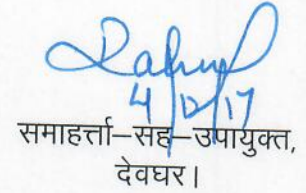 4/12/17
समाहर्त्ता–सह–उपायुक्त,
देवघर।